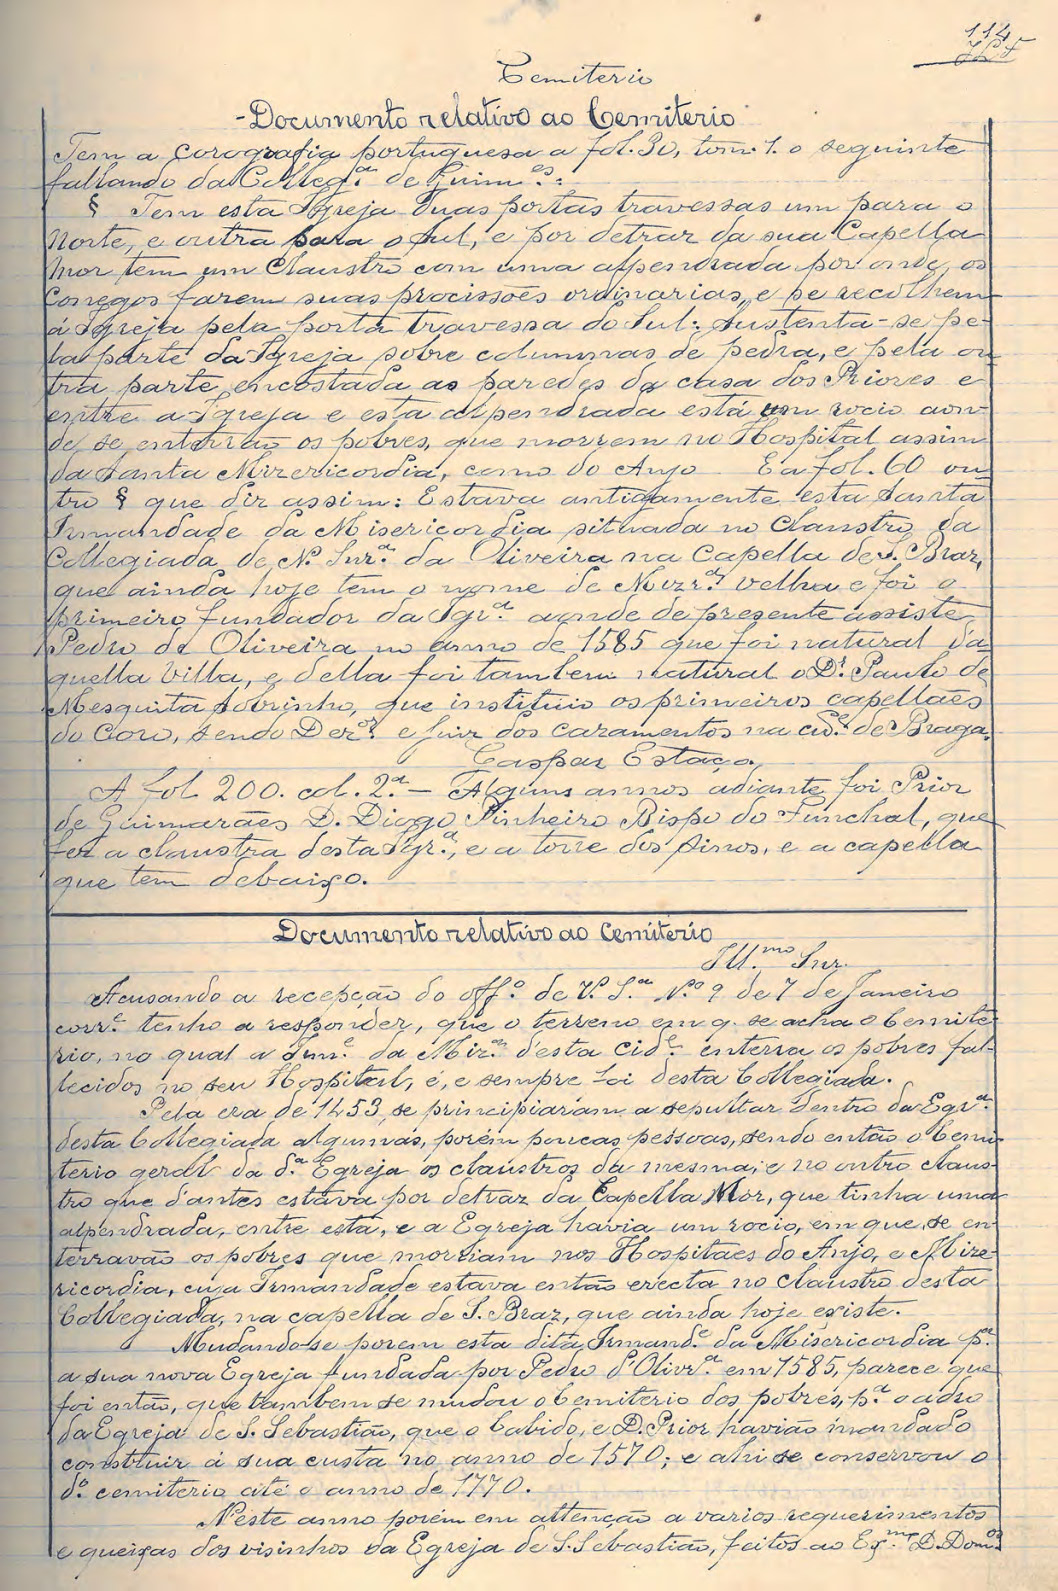 114
Cemiterio
-Documento relativo ao Cemiterio
Tem a corografia portuguesa a fol. 30, tom. 1. o seguinte
fallando da Colleg.ª de Guim.es:
§ Tem esta Igreja duas portas travessas um para o
Norte, e outra para o Sul, e por detraz da sua Capella
Mor tem um Claustro com uma alpendrada por onde os
Conegos fazem suas procissões ordinarias, e se recolhem
á Igreja pela porta travessa do Sul: Sustenta-se pe-
la parte da Igreja sobre columnas de pedra, e pela ou
tra parte encostada as paredes da casa dos Priores e
entre a Igreja e esta alpendrada está um rocio aon-
de se enterrão os pobres, que morrem no Hospital assim
da Santa Mizericordia, como do Anjo E a fol. 60 ou
tro § que diz assim: Estava antigamente esta Santa
Irmandade da Misericordia situada no Claustro da
Collegiada de N. Snr.ª da Oliveira na Capella de S. Braz,
que ainda hoje tem o nome de Mizr.ª velha e foi o
primeiro fundador da Igr.ª aonde de presente assiste
Pedro de Oliveira no anno de 1585 que foi natural da-
quella Villa, e della foi tambem natural o Dr. Paulo de
Mesquita Sobrinho, que instituio os primeiros capellães
do Coro, sendo Dez.or e Juiz dos cazamentos na cid.e de Braga.
Gaspar Estaço
A fol 200. col. 2.ª — Alguns annos adiante foi Prior
de Guimarães D. Diogo Pinheiro Bispo do Funchal, que
fez a claustra desta Igr.ª, e a torre dos sinos, e a capella
que tem debaixo.
Documento relativo ao Cemiterio
Ill.mo Snr.
Acusando a recepção do off.o de V. S.ª N.o 9 de 7 de Janeiro
corr.e tenho a responder, que o terreno em q. se acha o Cemite-
rio, no qual a Irm.e da Miz.ª d'esta cid.e enterra os pobres fal-
lecidos no seu Hospital, é, e sempre foi desta Collegiada.
Pela era de 1453, se principiariam a sepultar dentro da Egr.ª
desta Collegiada algumas, porém poucas pessoas, sendo então o Cemi-
terio geral da d.ª Egreja os claustros da mesma; e no outro claus-
tro que d'antes estava por detraz da Capella Mor, que tinha uma
alpendrada, entre esta, e a Egreja havia um rocio, em que, se en-
terravão os pobres que morriam nos Hospitaes do Anjo, e Mize-
ricordia, cuja Irmandade estava então erecta no claustro desta
Collegiada, na capella de S. Braz, que ainda hoje existe.
Mudando-se porem esta dita Irmand.e da Misericordia p.ª
a sua nova Egreja fundada por Pedro d'Olivr.ª em 1585, parece que
foi então, que tambem se mudou o Cemiterio dos pobres, p.ª o adro
da Egreja de S. Sebastião, que o Cabido, e D. Prior havião mandado
construir á sua custa no anno de 1570; e ahi se conservou o
d.o cemiterio até o anno de 1770.
N'este anno porém em attenção a varios requerimentos
e queixas dos visinhos da Egreja de S. Sebastião, feitos ao Ex.mo D. Dom.os